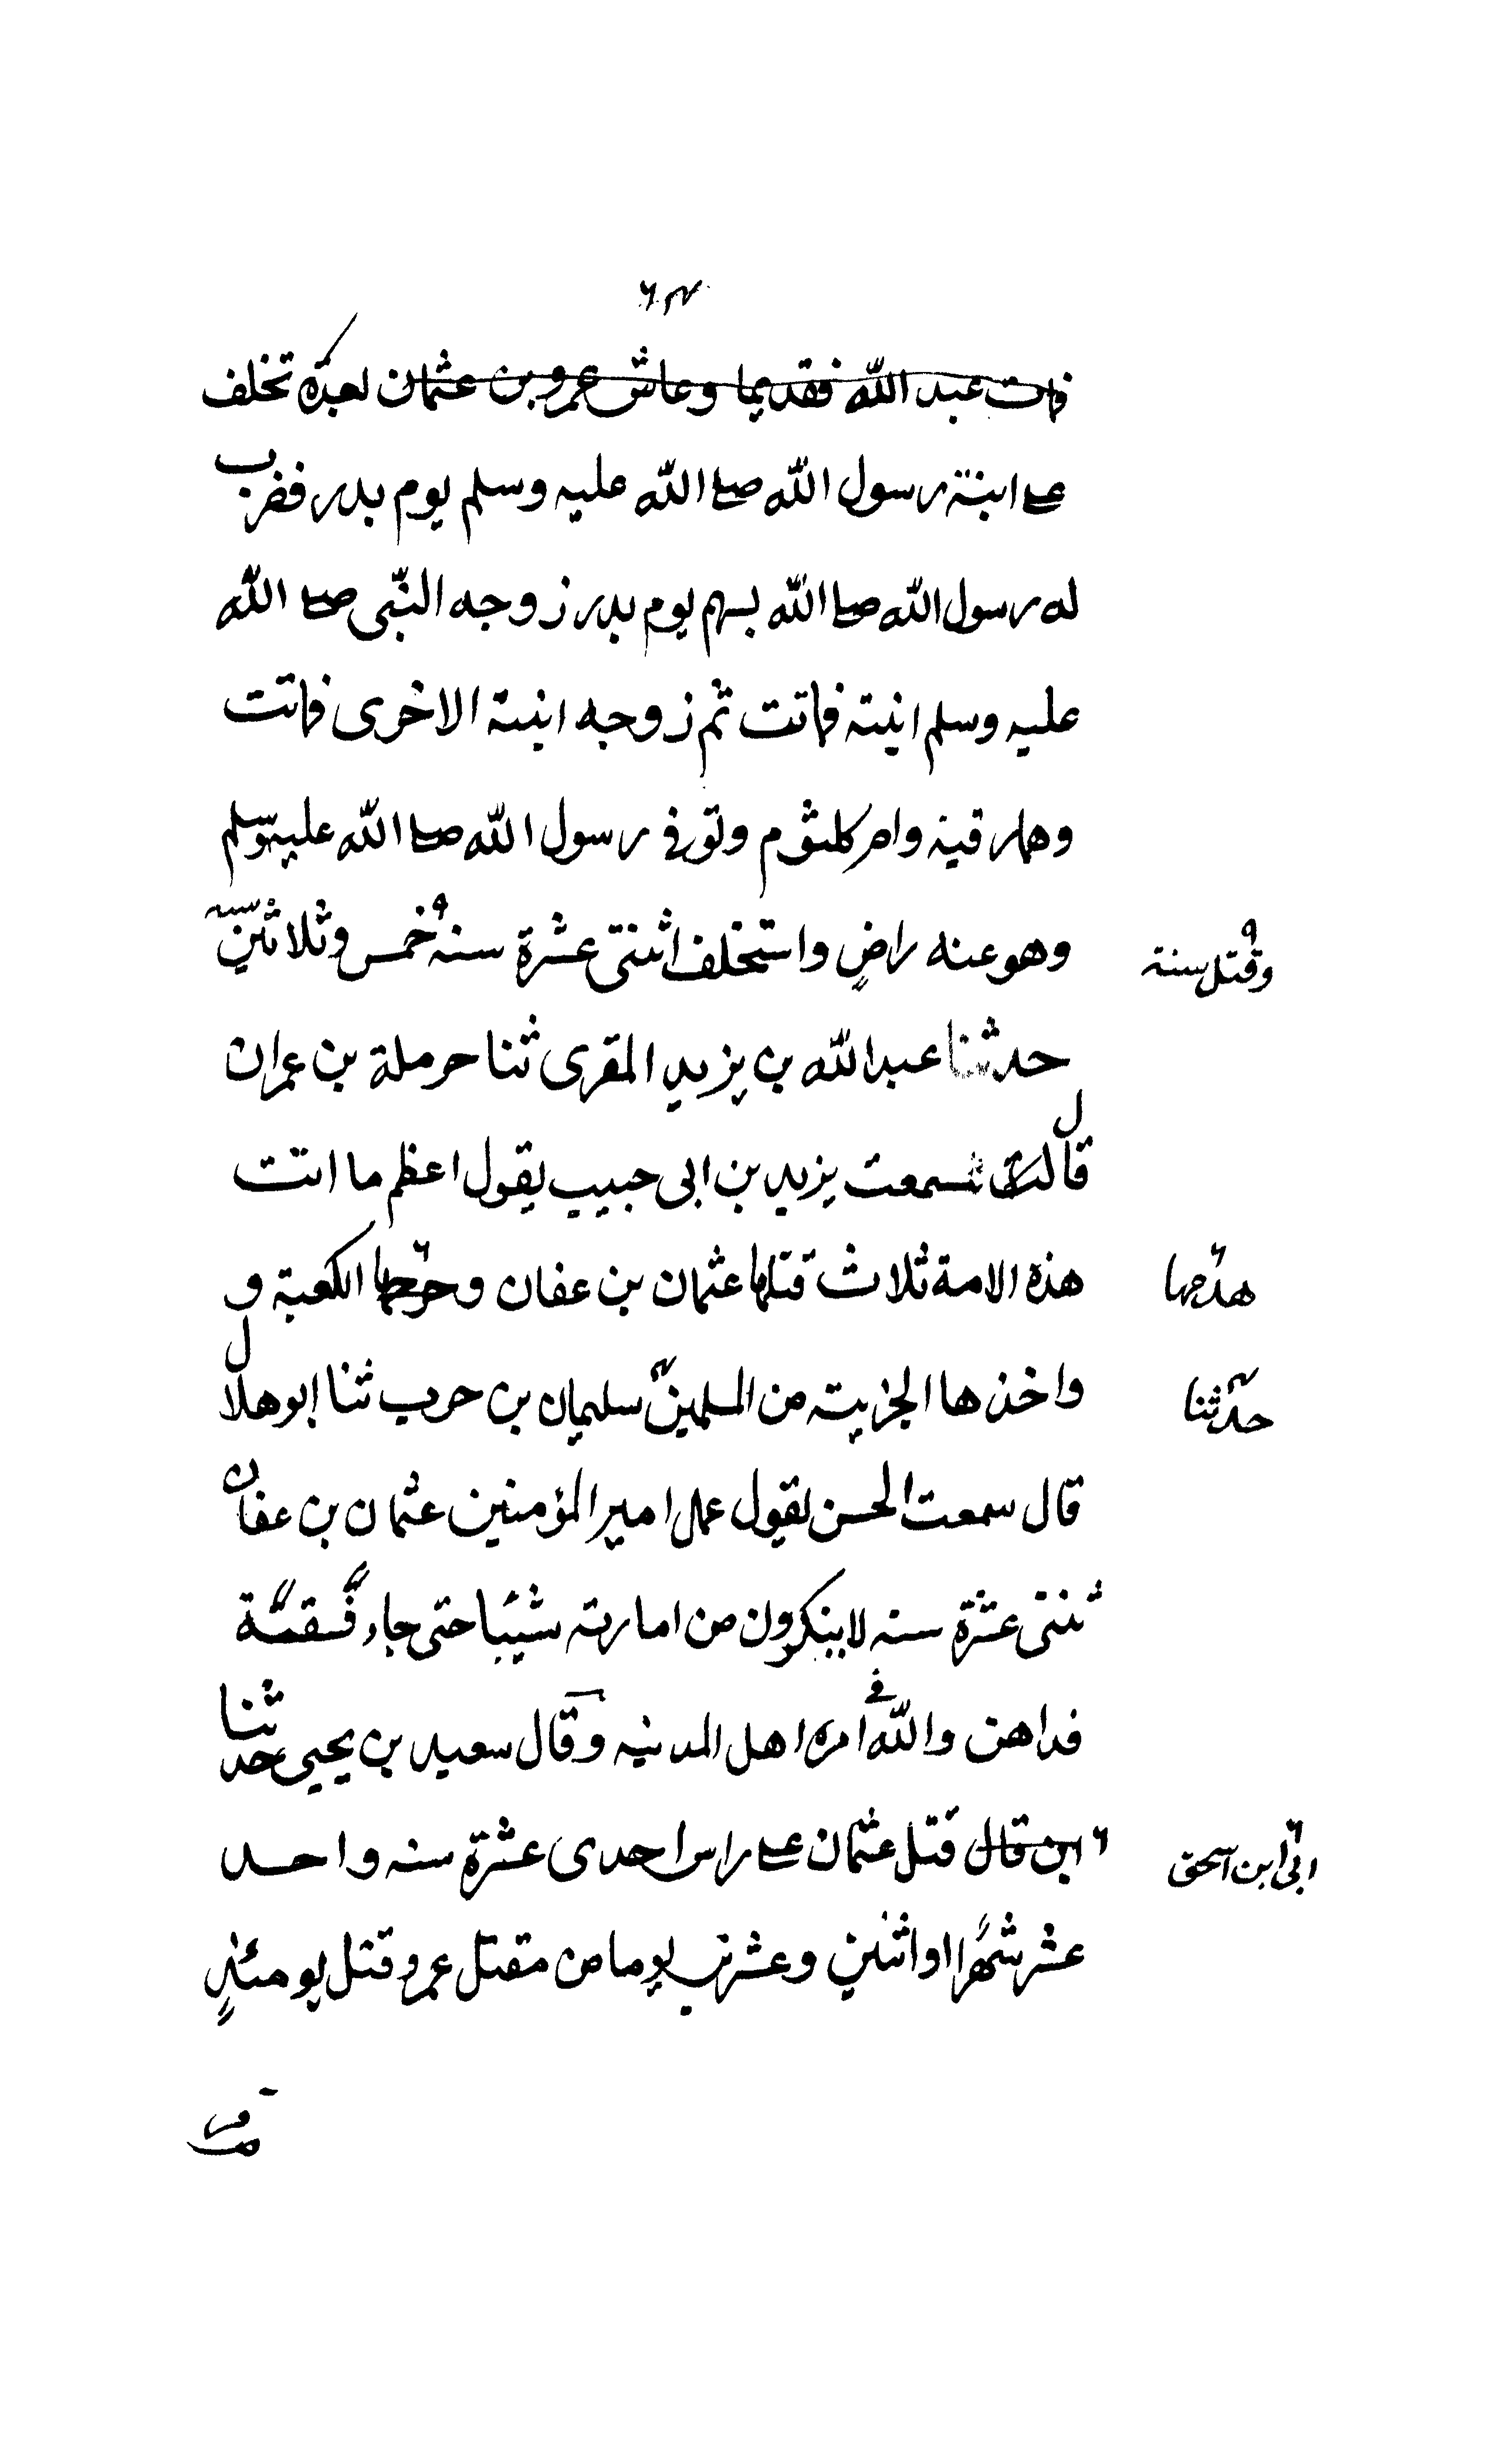 ٦٣
فمات عبد الله فقديما وعاش عمرو بن عثمان بعده تخلف
على ابنة رسول الله صلى الله عليه وسلم يوم بدر فضرب
له رسول الله صلى الله بسهم يوم بدر زوجه النبي صلى الله
عليه وسلم ابنته فماتت ثم زوجه ابنته الاخرى فماتت
وهما رقية وام كلثوم وتوفى رسول الله صلى الله عليه وسلم
وهو عنه راضٍ واستخلف اثنتى عشرة سنه خمس وثلاثين
وقتل سنة
حدثنا عبد الله بن يزيد المقرى ثنا حرملة بن عمران
قال سمعت يزيد بن ابى حبيب يقول اعظم ما اتت
هذه الامة ثلاث قتلها عثمان بن عفان وحرقها الكعبة و
هدمها
واخذها الجزية من المسلمين سليمان بن حرب ثنا ابو هلال
حدثنا
قال سمعت الحسن يقول عمل امير المؤمنين عثمان بن عفان
ثنتى عشرة سنه لا ينكرون من امارته شيئا حتى جاء فسقة
فداهن والله في امره اهل المدينه وقال سعيد بن يحيى حدثنا
ابن قال قتل عثمان على راس احدى عشرة سنه واحد
ابى ابن اسحق
عشر شهرا او اثنين وعشرين يوما من مقتل عمر وقتل يومئذٍ